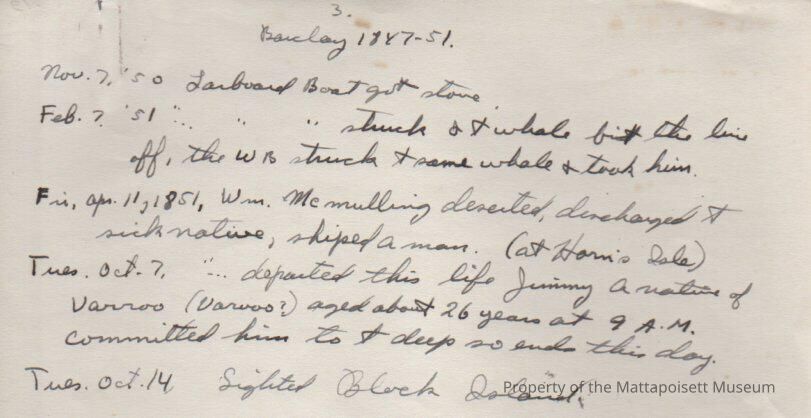 3.
Barclay 1847-51.
Nov. 7, '50 Larboard Boat got stove
Feb. 7 '51 " " " struck & t whale bit the line
off, the WB struck t same whale & took him.
Fri, apr. 11, 1851, Wm. McMulling deserted, discharged t
sick native, shiped a man. (at Horn's Isle)
Tues. Oct. 7, "... departed this life Jimmy a native of
Varroo (Varvoo?) aged about 26 years at 9 A.M.
committed him to t deep so ends this day.
Tues. Oct. 14 Sighted Block Island.
Property of the Mattapoisett Museum